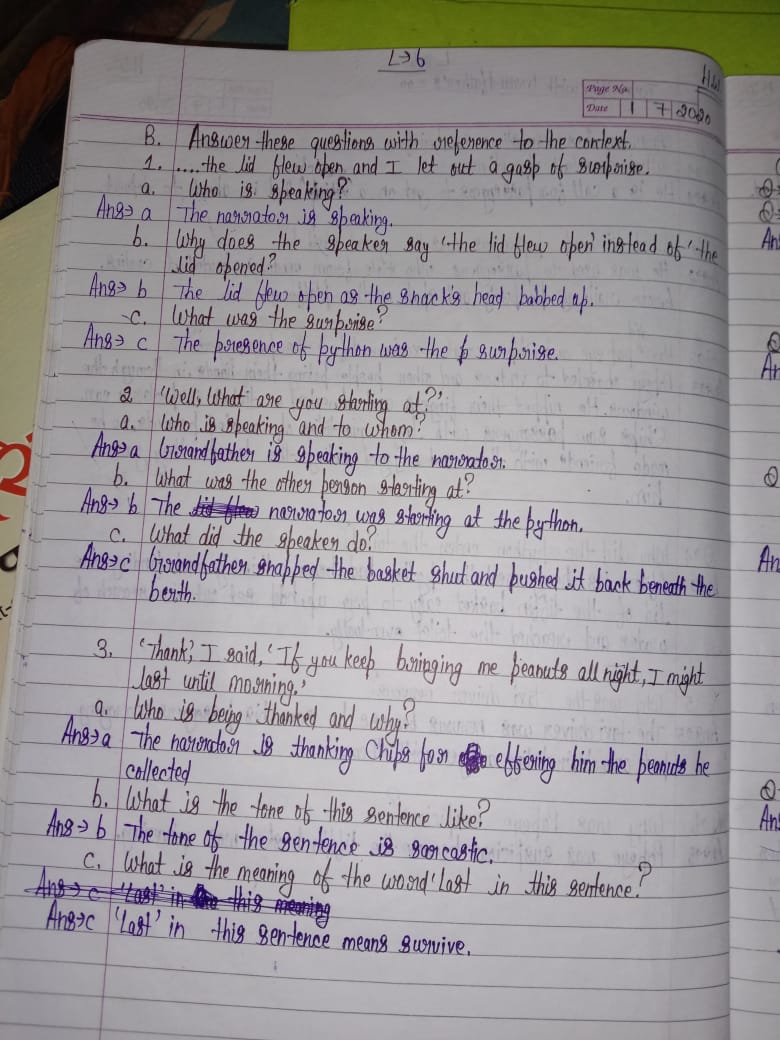 L→6
H.W
Page No.
Date 1 7 2020
B. Answer these questions with reference to the context.
1. ....the lid flew open and I let out a gasp of surprise.
a. Who is speaking?
Ans→ a The narrator is speaking.
b. Why does the speaker say 'the lid flew open' instead of 'the
lid opened?
Ans→ b The lid flew open as the snack's head babbed up.
c. What was the surprise?
Ans→ c The presence of python was the surprise.
2. 'Well, What are you starting at?'
a. Who is speaking and to whom?
Ans→ a Grandfather is speaking to the narrator.
b. What was the other person starting at?
Ans→ b The lid flew narrator was starting at the python.
c. What did the speaker do?
Ans→ c Grandfather snapped the basket shut and pushed it back beneath the
berth.
3. 'Thank', I said, 'If you keep bringing me peanuts all night, I might
last until morning.'
a. Who is being thanked and why?
Ans→ a The narrator is thanking Chips for effering him the peanuts he
collected
b. What is the tone of this sentence like?
Ans→ b The tone of the sentence is sarcastic.
c. What is the meaning of the word 'Last in this sentence?
Ans→ c 'Last' in this meaning
Ans→c 'Last' in this sentence means survive.
Q
Q
An
Q
An
Q
An
Q
An